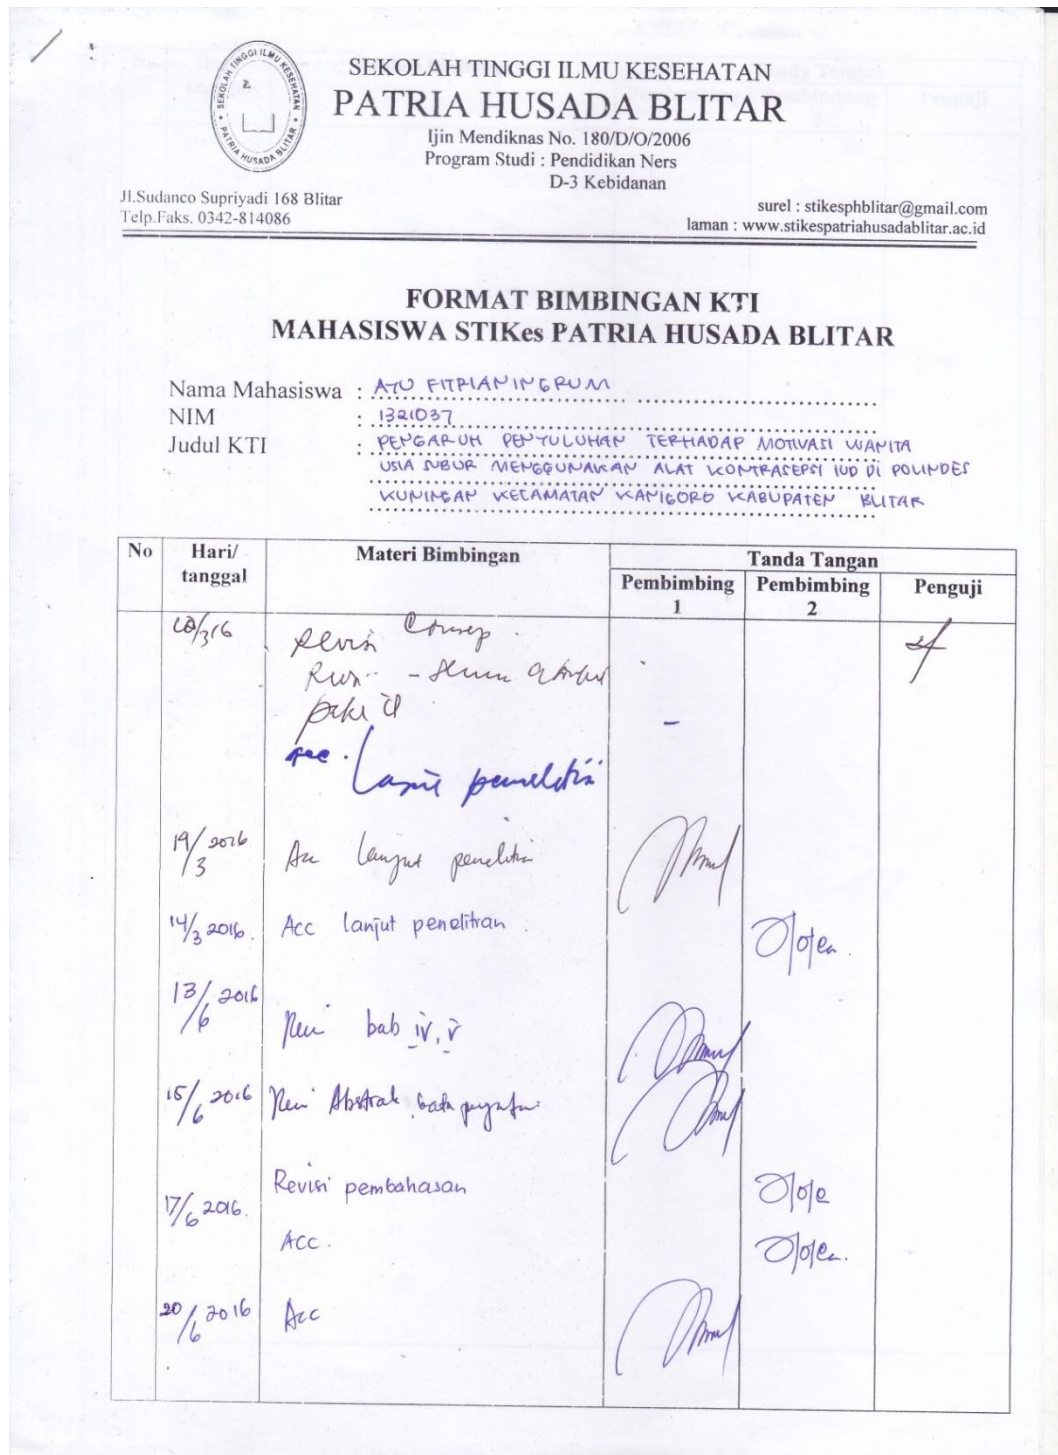 SEKOLAH TINGGI ILMU KESEHATAN
SEKOLAH TINGGI ILMU KESEHATAN
PATRIA HUSADA BLITAR
PATRIA HUSADA BLITAR
Ijin Mendiknas No. 180/D/O/2006
Program Studi : Pendidikan Ners
D-3 Kebidanan
Jl.Sudanco Supriyadi 168 Blitar
Telp.Faks. 0342-814086
surel : stikesphblitar@gmail.com
laman : www.stikespatriahusadablitar.ac.id
FORMAT BIMBINGAN KTI
MAHASISWA STIKes PATRIA HUSADA BLITAR
Nama Mahasiswa : AYU FITRIANINGRUM
NIM : 1321037
Judul KTI : PENGARUH PENYULUHAN TERHADAP MOTIVASI WANITA
USIA SUBUR MENGGUNAKAN ALAT KONTRASEPSI IUD DI POLINDES
KUNINGAN KECAMATAN KANIGORO KABUPATEN BLITAR
No Hari/ tanggal Materi Bimbingan Tanda Tangan
Pembimbing 1 Pembimbing 2 Penguji
Revisi Consep
Acc. Lanjut penelitian
19/3 2016 Acc lanjut penelitian
14/3 2016. Acc lanjut penelitian
13/6 2016 Revi bab iv, v
15/6 2016 Revi Abstrak
17/6 2016. Revisi pembahasan
Acc.
20/6 2016 Acc